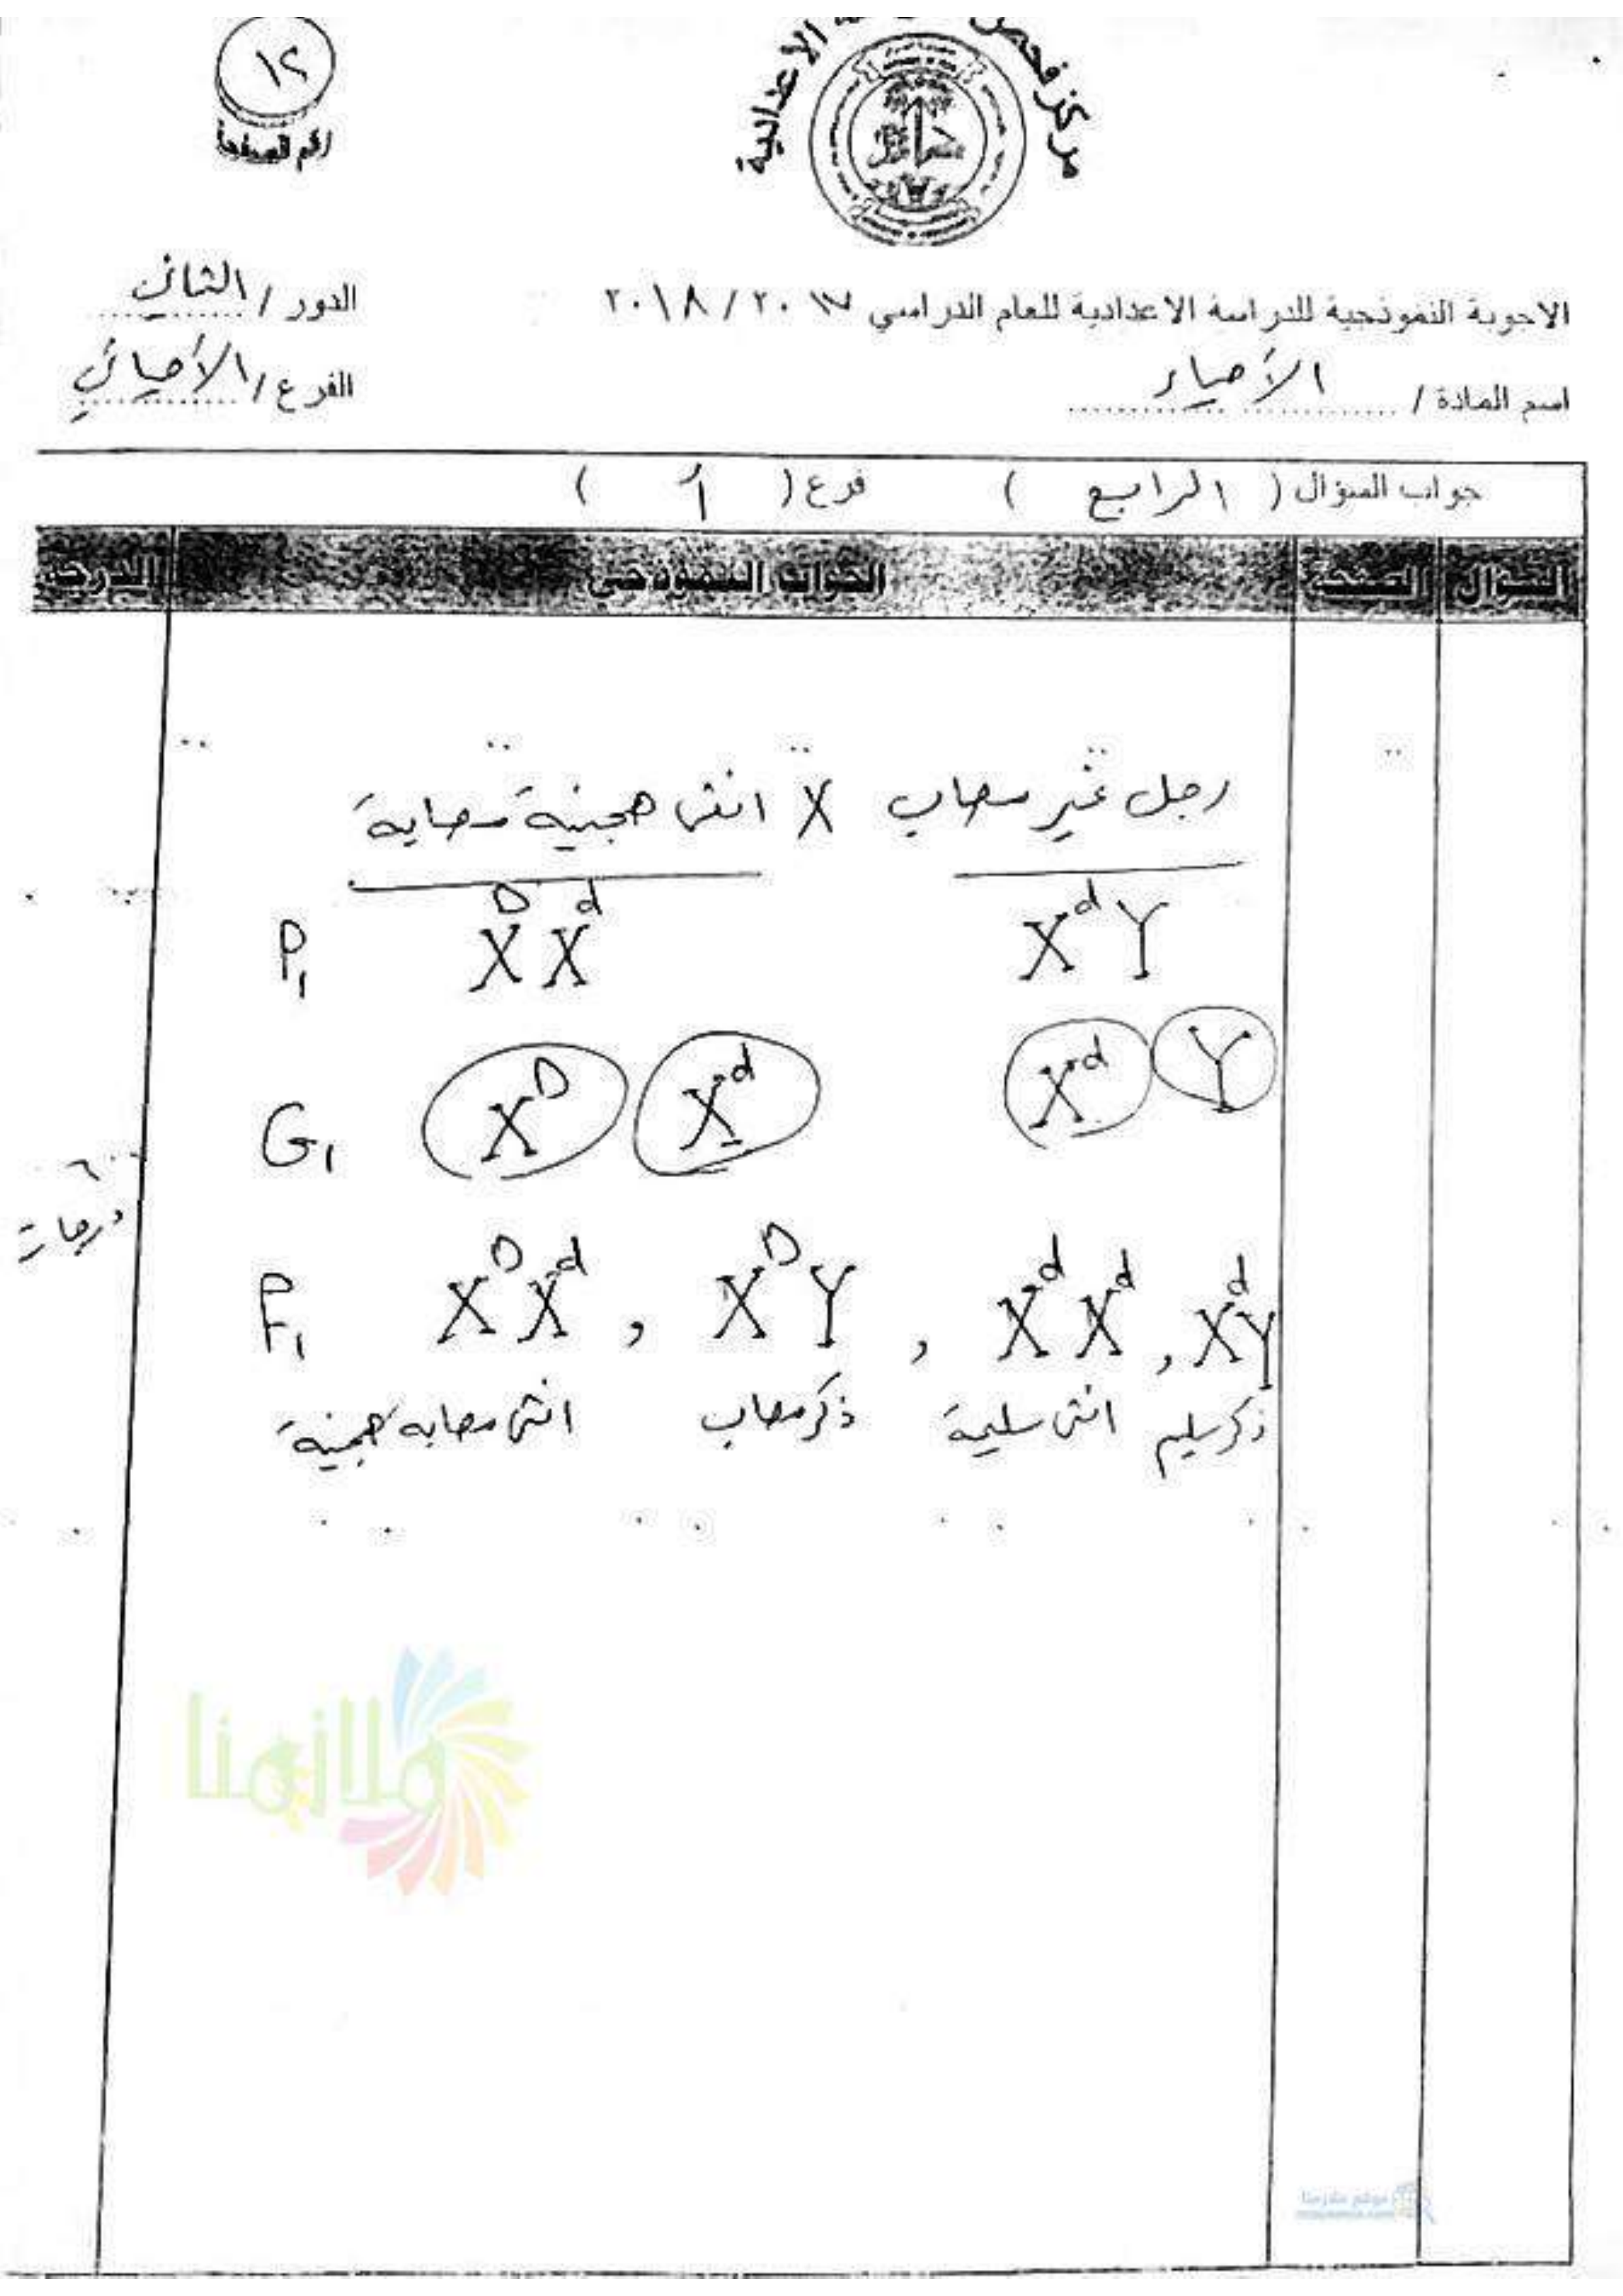 ١٢
رقم الصفحة
مركز فحص الاعدادية
الاجوبة النموذجية للدراسة الاعدادية للعام الدراسي ٢٠١٧ / ٢٠١٨
الدور / الثاني
اسم المادة / الأحياء
الفرع / الأحيائي
جواب السؤال ( الرابع ) فرع ( أ )
السؤال الصفحة الجواب النموذجي الدرجة
رجل غير مصاب X انثى هجينة مصابة
P₁ XᴰXᵈ XᵈY
G₁ Xᴰ Xᵈ Xᵈ Y
٦ درجات
F₁ XᴰXᵈ , XᴰY , XᵈXᵈ , XᵈY
ذكر سليم انثى سليمة ذكر مصاب انثى مصابه هجينة
ملازمنا
موقع ملازمنا